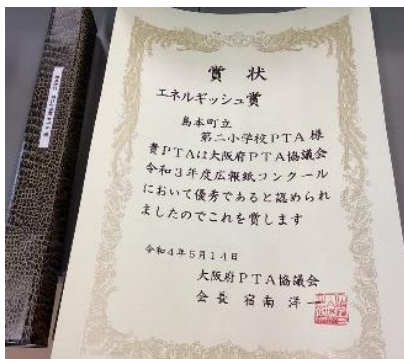 賞状
エネルギッシュ賞
島本町立
第二小学校PTA 様
貴PTAは大阪府PTA協議会
令和3年度広報紙コンクール
において優秀であると認められ
ましたのでこれを賞します
令和4年5月14日
大阪府PTA協議会
会長 宿南 洋一